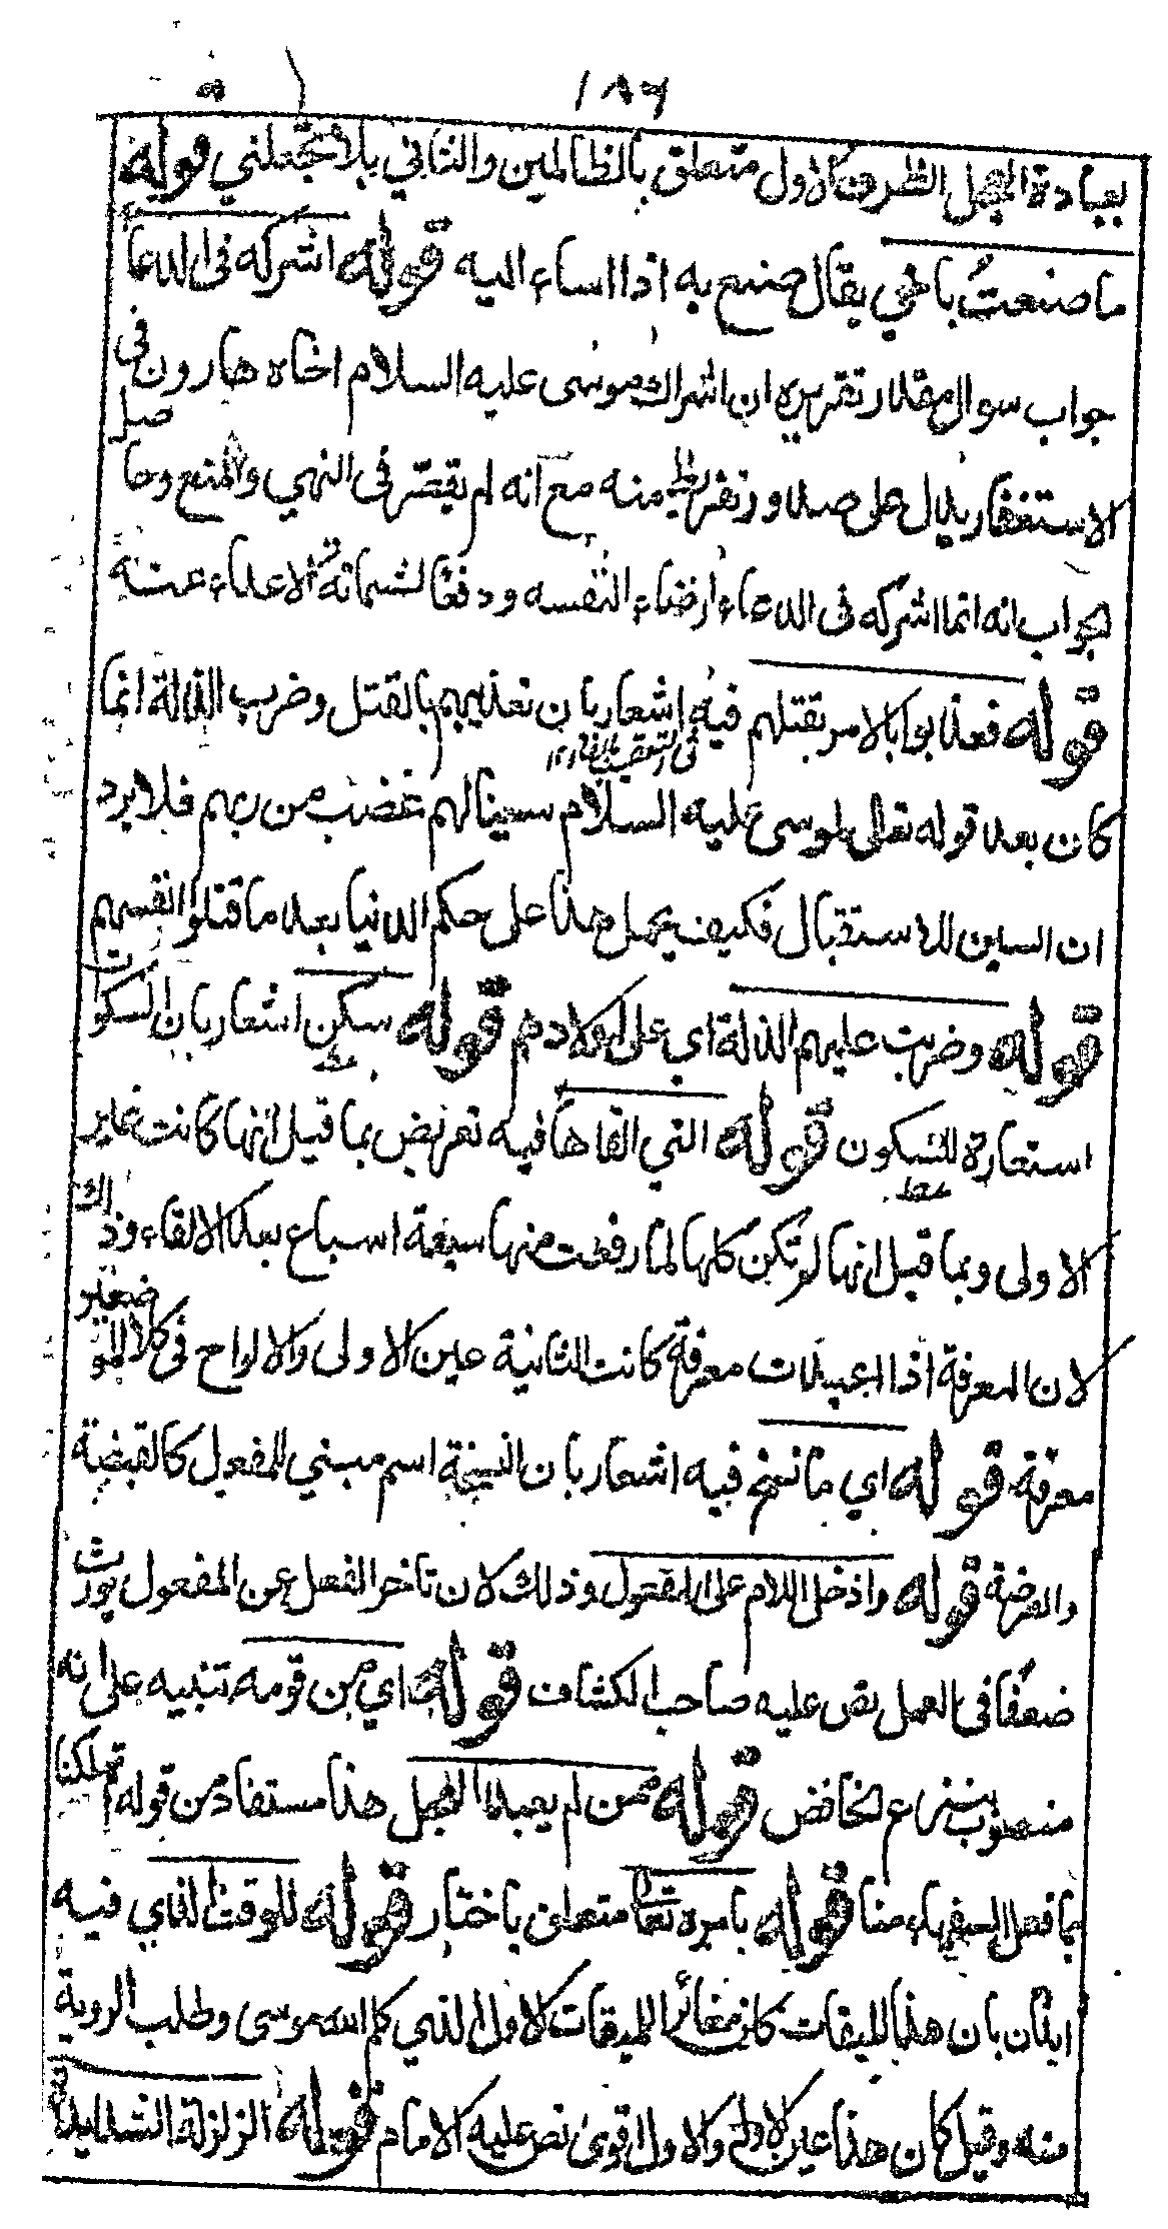 ١٨٦
بعبادة العجل الظرف الاول متعلق بالظالمين والثاني بلا تجعلني قوله
ما صنعت باخي يقال صنع به اذا اساء اليه قوله اشركه فى الدعاء
جواب سوال مقدر تقريره ان اشراك موسى عليه السلام اخاه هارون فى
الاستغفار يدل على صدور تفريط منه مع انه لم يقصّر فى النهي والمنع وحاصل
الجواب انه انما اشركه فى الدعاء ارضاء لنفسه ودفعا لشماتة الاعداء عنه
قوله فعذبوا بالامر بقتلهم فيه اشعار بان تعذيبهم بالقتل وضرب الذلة انما
كان بعد قوله تعالى لموسى عليه السلام سينالهم غضب من ربهم فلا يرد
ان السين للاستقبال فكيف يحمل هذا على حكم الدنيا بعد ما قتلوا انفسهم
قوله وضربت عليهم الذلة اي على اولادهم قوله سكن اشعار بان السكوت
استعارة للسكون قوله التي القاها فيه تعريض بما قيل انها كانت غير
الاولى وبما قيل انها لم تكن كلها لما رفعت منها سبعة اسباع بعد الالقاء وذلك
لان المعرفة اذا اعيدت معرفة كانت الثانية عين الاولى والالواح فى كلا الموضعين
معرفة قوله اي ما نسخ فيه اشعار بان النسخة اسم مبني للمفعول كالقبضة
والغرفة قوله وادخل اللام على المفعول وذلك لان تاخر الفعل عن المفعول يورث
ضعفا فى العمل نص عليه صاحب الكشاف قوله اي من قومه تنبيه على انه
منصوب بنزع الخافض قوله ممن لم يعبد العجل هذا مستفاد من قوله اتهلكنا
بما فعل السفهاء منا قوله بامره تعالى متعلق باختار قوله للوقت الذي فيه
ايذان بان هذا الميقات كان مغائر الميقات الاول الذي كلم الله موسى وطلب الروية
منه وقيل كان هذا عين الاول والاول اقوى نص عليه الامام قوله الزلزلة الشديدة